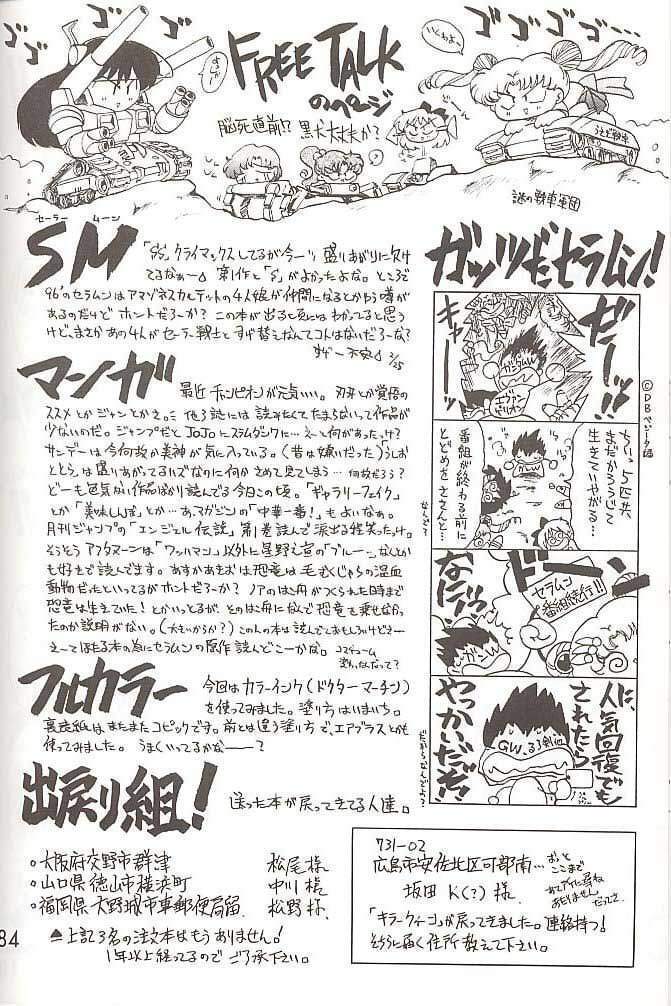 ゴゴゴ
FREE TALK
のページ
脳死直前!? 黒犬大丈夫か?
いくわよー
ゴゴゴ
謎の戦車軍団
セーラー ムーン
SM
「SS」クライマックスしてるが今一つ盛りあがりに欠け
てるなぁー 第1作と「S」がよかったよな。ところで
96'のセラムンはアマゾネスカルテットの4人娘が仲間になるとかゆう噂が
あるのだけど ホントだろーか? この本が出る頃にはわかってると思う
けど、まさかあの4人がセーラー戦士とすげ替えなんてコトはないだろーな?
すげー不安 2/25
マンガ
最近チャンピオンが元気いい。刃牙とか覚悟の
ススメとかジャンとかさ。他3誌には読みたくてたまらないって作品が
少ないのだ。ジャンプだとJoJoにスラムダンクに…えーて何があったっけ?
サンデーは今何故か美神が気に入っている。(昔は嫌いだった)うしおと
とらは盛りあがってるハズなのに何かさめて見てしまう…何故だろう?
どーも色気がない作品ばかり読んでる今日この頃。「ギャラリーフェイク」
とか「美味しんぼ」とか…あ、マガジンの「中華一番!」もよいなぁ。
月刊ジャンプの「エンジェル伝説」第1巻読んで涙出る程笑ったっけ。
そうそうアフタヌーンは
以外に星野之宣の「ブルー」なんとか
も好きで読んでます。あすかあきおは恐竜は毛むくじゃらの温血
動物だったといってるがホントだろーか? ノアのはこ舟がつくられた時まで
恐竜は生きていた!とかいっとるが、そのはこ舟になんで恐竜を乗せなかっ
たのか説明がない。(大きいからか?)この人の本は読んでておもしろいけどさー
えーてほたる本の為にセラムンの原作読んどこーかな。
フルカラー
今回はカラーインク(ドクターマーチン)
を使ってみました。塗り方はいまいち。
裏表紙はまたまたコピックです。前とは違う塗り方で、エアブラスとかも
使ってみました。うまくいってるかなーー?
出戻り組!
送った本が戻ってきてる人達。
○大阪府交野市郡津 松尾様
○山口県徳山市横浜町 中川様
○福岡県大野城市東郵便局留 松野様
▲上記3名の注文本はもうありません!
1年以上経ってるのでご了承下さい。
84
ガッツだセラムン!
©DBベジータ編
ゼーッ!!
キャー
ガンダムW
エヴァンゲリオン
ちいっ5匹共
まだかろうじて
生きていやがる…
番組が終わる前に
とどめをささんと…
なんで?
ドーン
セラムン
番組続行!!
なにぃっ!
人気回復でも
されたら
やっかいだぞ!
GW、るろ剣
だからなんでよ?
731-02
広島市安佐北区可部南…おっと
ここまで
坂田K(?)様
「キラークィーン」が戻ってきました。連絡待つ!
そちらに届く住所教えて下さい。